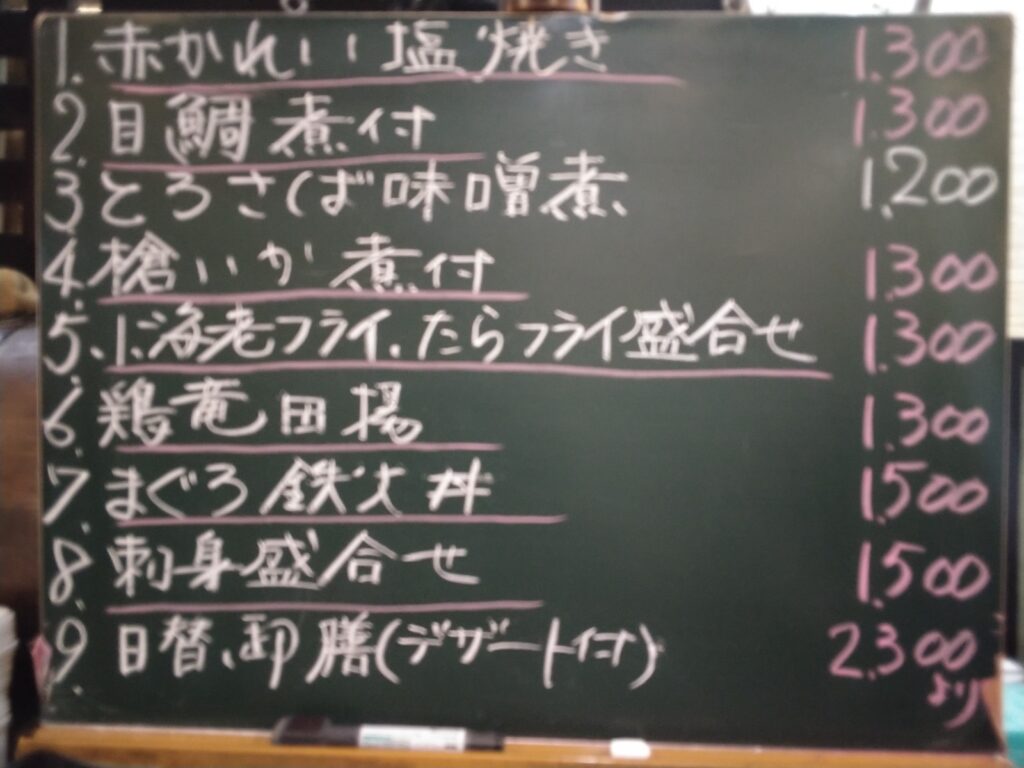 1. 赤かれい塩焼き 1.300
2. 目鯛煮付 1.300
3. とろさば味噌煮 1.200
4. 槍いか煮付 1.300
5. 小海老フライ、たらフライ盛合せ 1.300
6. 鶏竜田揚 1.300
7. まぐろ鉄火丼 1.500
8. 刺身盛合せ 1.500
9. 日替、御膳(デザート付) 2.300
より